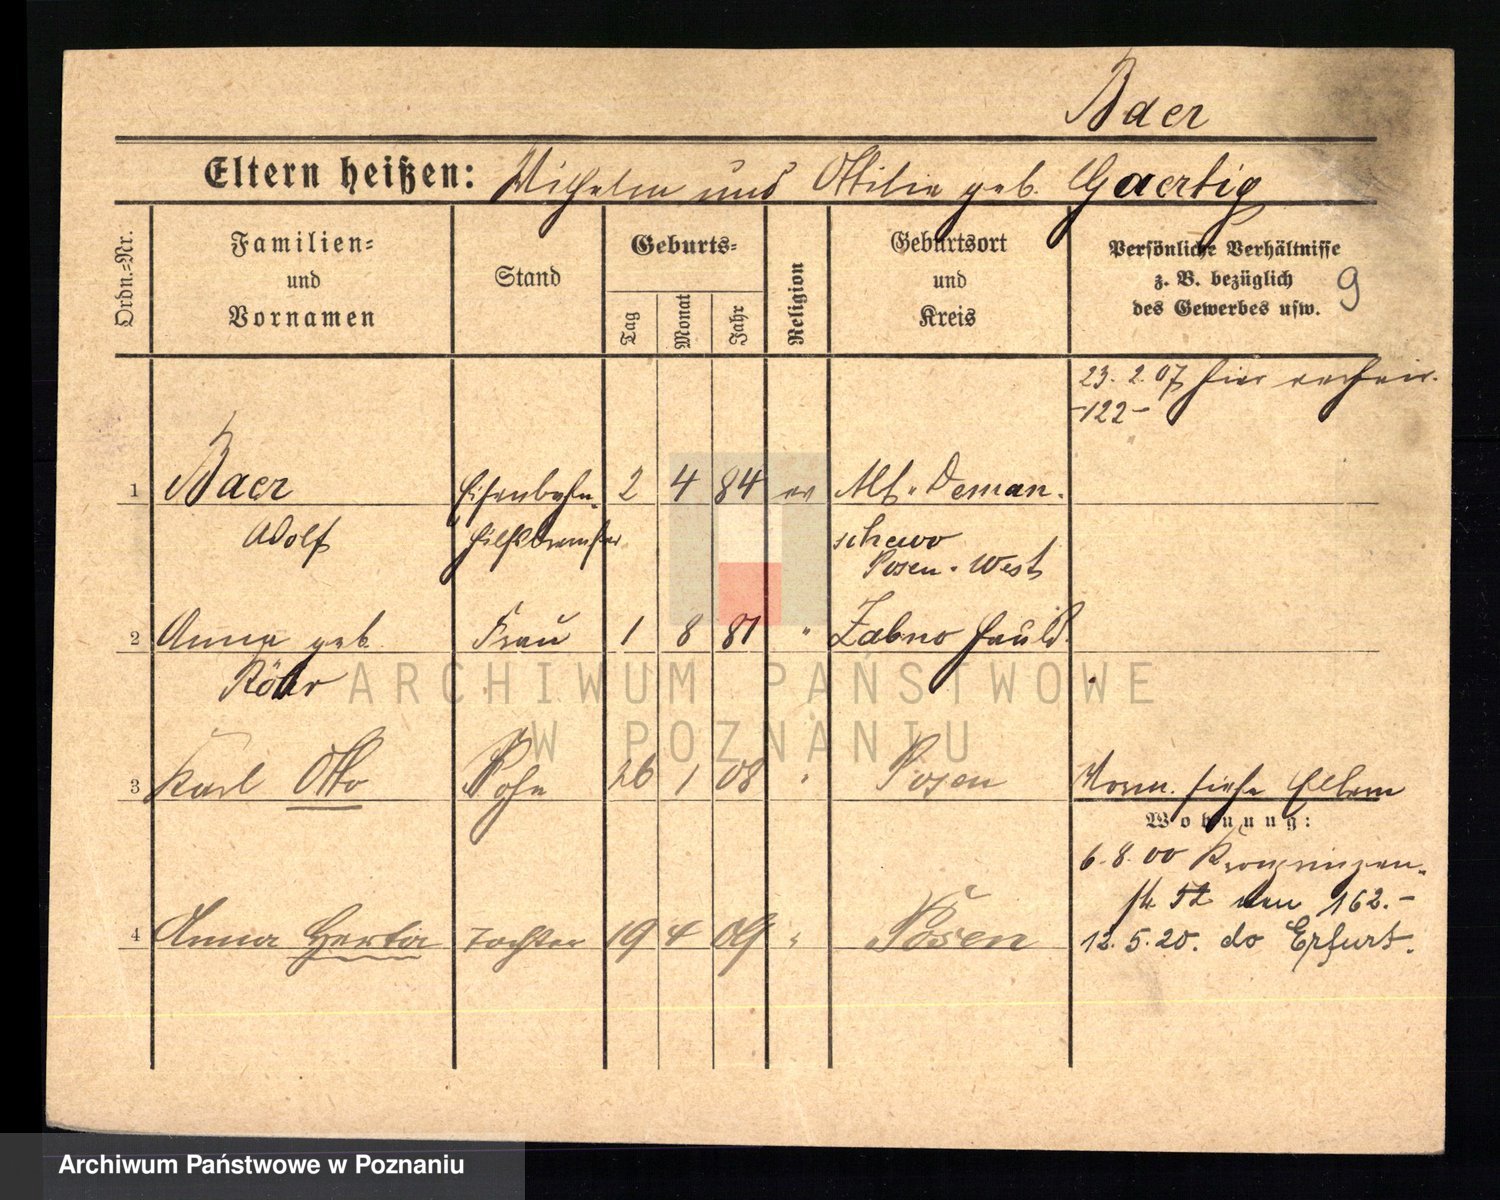 Baer
Eltern heißen: Wilhelm und Ottilie geb. Gaertig
Ordn.=Nr.
Familien=
und
Vornamen
Stand
Geburts=
Tag
Monat
Jahr
Religion
Geburtsort
und
Kreis
Persönliche Verhältnisse
z. B. bezüglich
des Gewerbes usw.
9
23. 2. 07 hier verheir.
-122-
1 Baer Eisenbahn- 2 4 84 ev Alt-Deman-
Adolf Hilfsbremser schewo
Posen-West
2 Anna geb. Frau 1 8 81 " Zabno
Röhr
3 Karl Otto Sohn 26 1 08 " Posen Vorm. siehe Eltern
Wohnung:
6. 8. 00 Kronprinzen-
str 52 162.-
4 Anna Herta Tochter 19 4 09 " Posen 12. 5. 20. do Erfurt.
ARCHIWUM PAŃSTWOWE
W POZNANIU
Archiwum Państwowe w Poznaniu